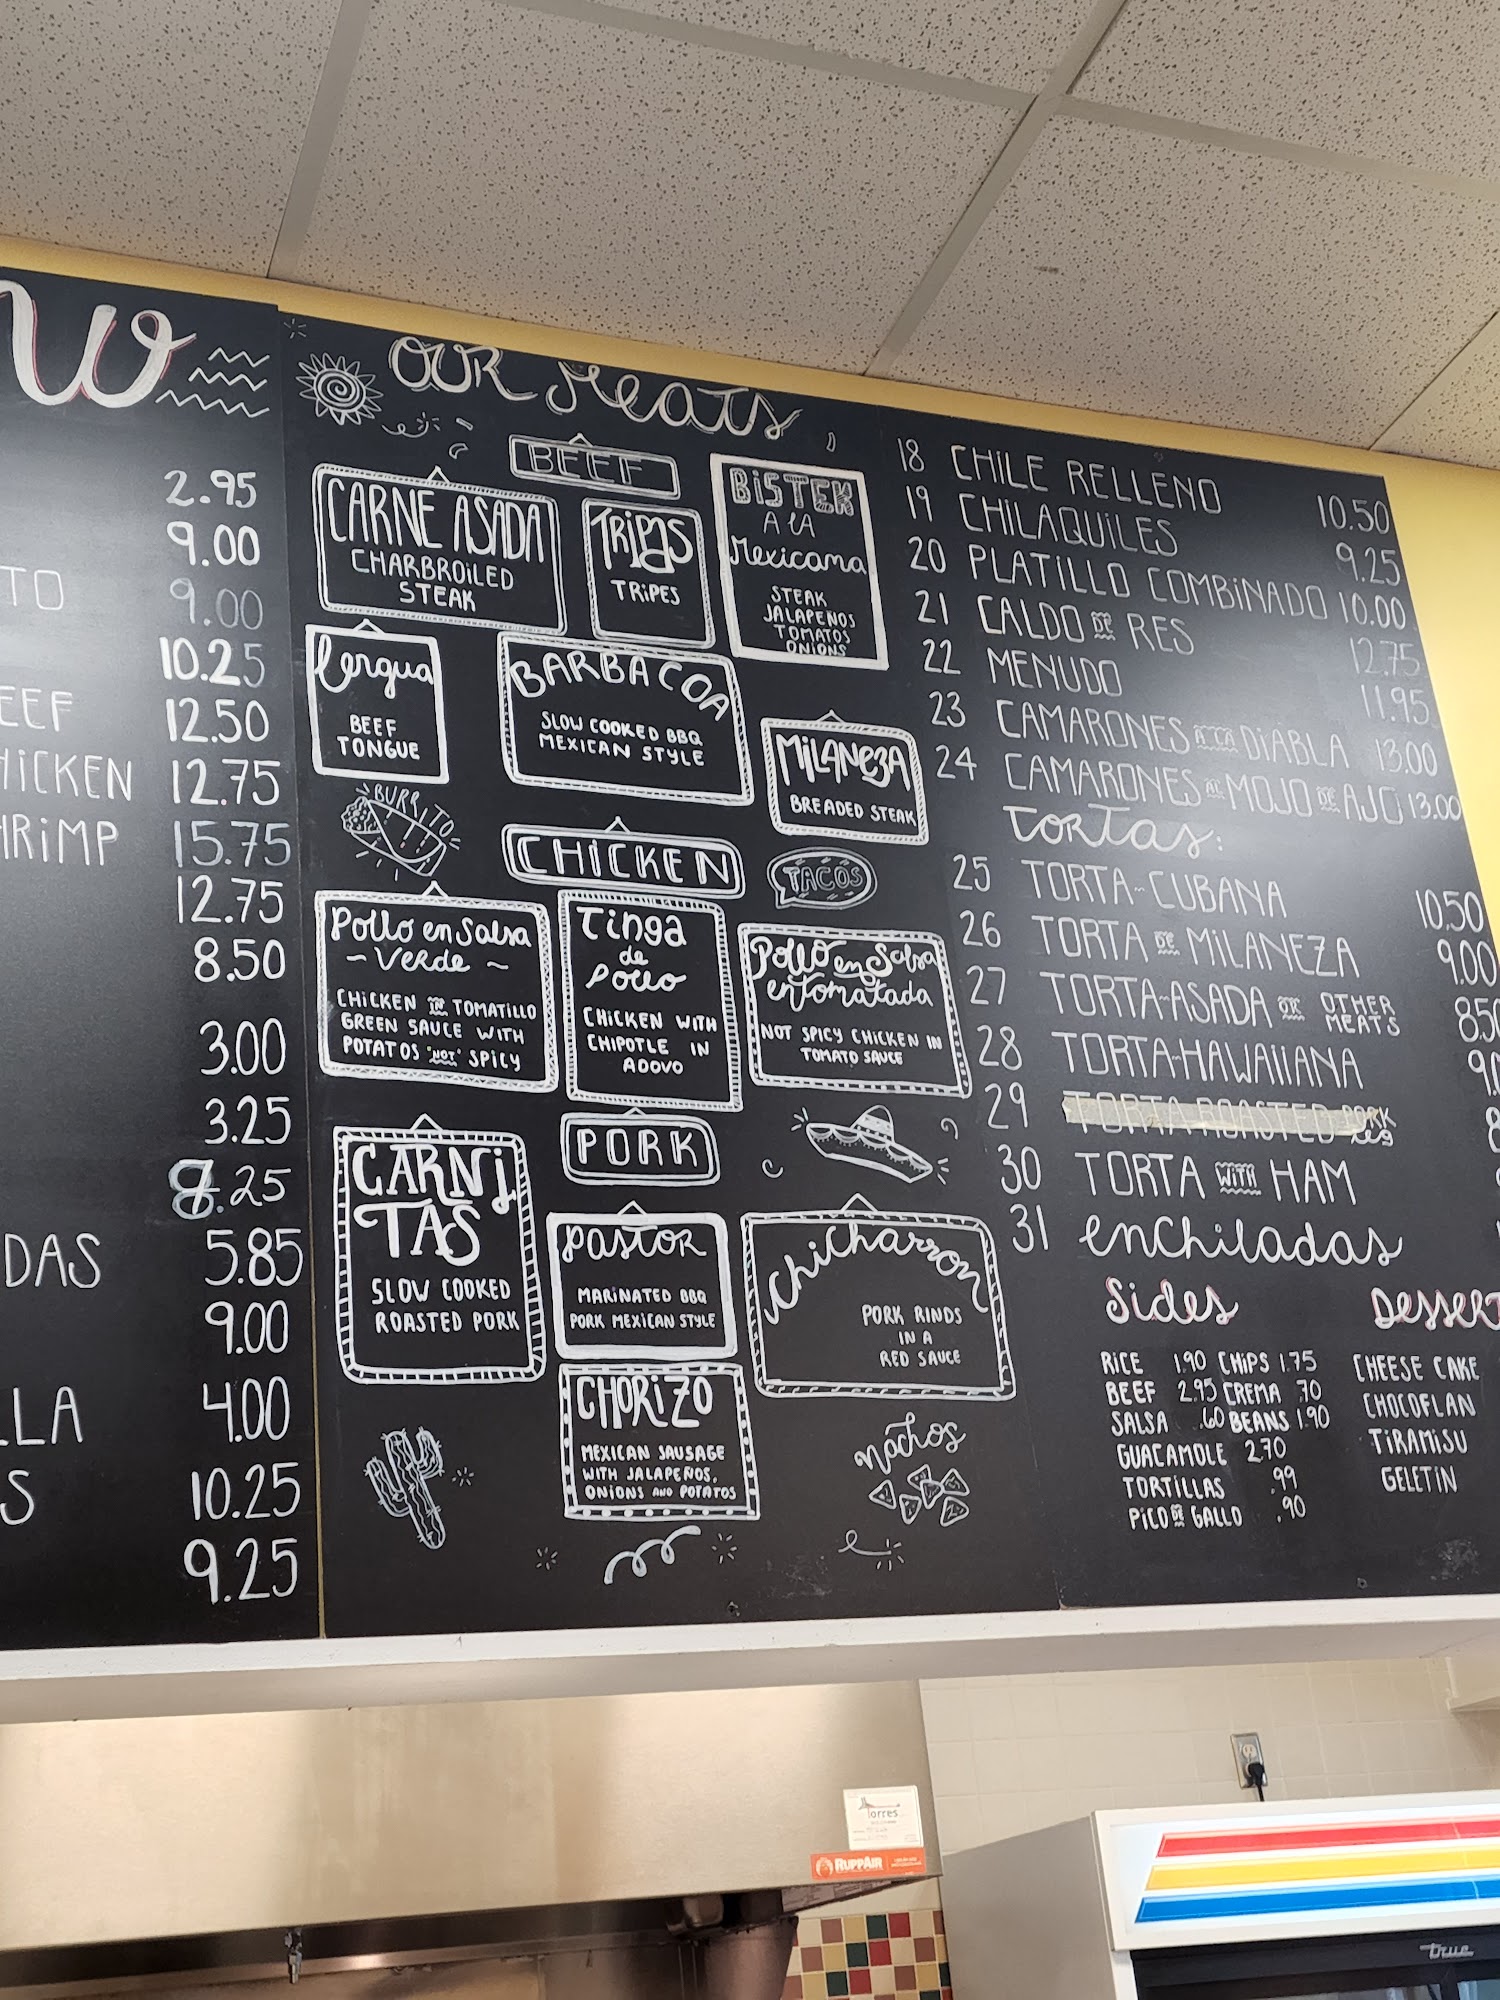 2.95
9.00
TO 9.00
10.25
EEF 12.50
HiCKEN 12.75
HRiMP 15.75
12.75
8.50
3.00
3.25
8.25
DAS 5.85
9.00
LLA 4.00
S 10.25
9.25
OUR Meats
BEEF
CARNE ASADA
CHARBROiLED
STEAK
TRiPAS
TRiPES
BiSTEK
A LA
Mexicana
STEAK
JALAPEÑOS
TOMATOS
ONiONS
Lengua
BEEF
TONGUE
BARBACOA
SLOW COOKED BBQ
MEXICAN STYLE
MiLANEZA
BREADED STEAK
BURRITO
CHiCKEN
TACOS
Pollo en Salsa
~ Verde ~
CHiCKEN IN TOMATILLO
GREEN SAUCE WITH
POTATOS "NOT" SPICY
Tinga
de
Pollo
CHiCKEN WITH
CHIPOTLE IN
ADOVO
Pollo en Salsa
entomatada
NOT SPICY CHICKEN IN
TOMATO SAUCE
PORK
CARNi
TAS
SLOW COOKED
ROASTED PORK
Pastor
MARINATED BBQ
PORK MEXICAN STYLE
Chicharron
PORK RINDS
IN A
RED SAUCE
CHORiZO
MEXICAN SAUSAGE
WITH JALAPEÑOS,
ONIONS AND POTATOS
nachos
18 CHiLE RELLENO 10.50
19 CHiLAQUiLES 9.25
20 PLATiLLO COMBiNADO 10.00
21 CALDO DE RES 12.75
22 MENUDO 11.95
23 CAMARONES A LA DiABLA 13.00
24 CAMARONES AL MOJO DE AJO 13.00
Tortas:
25 TORTA-CUBANA 10.50
26 TORTA DE MiLANEZA 9.00
27 TORTA-ASADA OR OTHER MEATS 8.50
28 TORTA-HAWAiiANA 9.0
29 TORTA ROASTED PORK Leg 8
30 TORTA WITH HAM
31 enchiladas
Sides
RiCE 1.90 CHiPS 1.75
BEEF 2.95 CREMA .70
SALSA .60 BEANS 1.90
GUACAMOLE 2.70
TORTiLLAS .99
PiCO DE GALLO .90
Dessert
CHEESE CAKE
CHOCOFLAN
TiRAMiSU
GELETiN
Torres
RUPPAIR
True